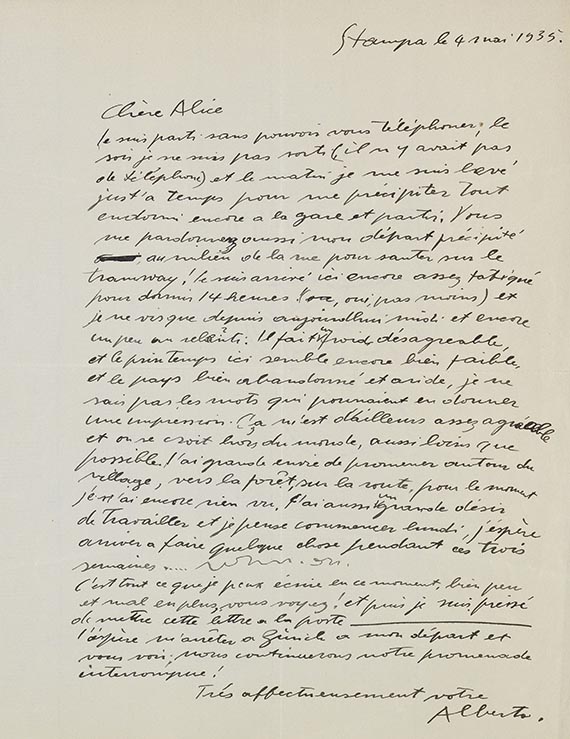 Stampa le 4 mai 1935.
Chère Alice
Je suis parti sans pouvoir vous téléphoner, le
soir je ne suis pas sorti (il n'y avait pas
de téléphone) et le matin je me suis levé
just'a temps pour me précipiter tout
endormi encore a la gare et partir. Vous
me pardonnez aussi mon départ précipité
au milieu de la rue pour sauter sur le
tramway! Je suis arrivé ici encore assez fatigué
pour dormir 14 heures (oui, pas moins) et
je ne vis que depuis aujourd'hui midi et encore
un peu au ralenti. Il fait froid, désagreable,
et le printemps ici semble encore bien faible,
et le pays bien abandonné et aride, je ne
sais pas les mots qui pourraient en donner
une impression. Ça m'est d'ailleurs assez agréable
et on se croit hors du monde, aussi loin que
possible. J'ai grande envie de promener autour du
village, vers la forêt, sur la route, pour le moment
je n'ai encore rien vu. J'ai aussi un grande désir
de travailler et je pense commencer lundi, j'éspère
arriver a faire quelque chose pendant ces trois
semaines .....
C'est tout ce que je peux écrire en ce moment, bien peu
et mal en plus, vous voyez! et puis je suis pressé
de mettre cette lettre a la poste
J'éspère m'arrêter a Zürich a mon départ et
vous voir, nous continuerons notre promenade
interrompue!
Trés affectueusement votre
Alberto.